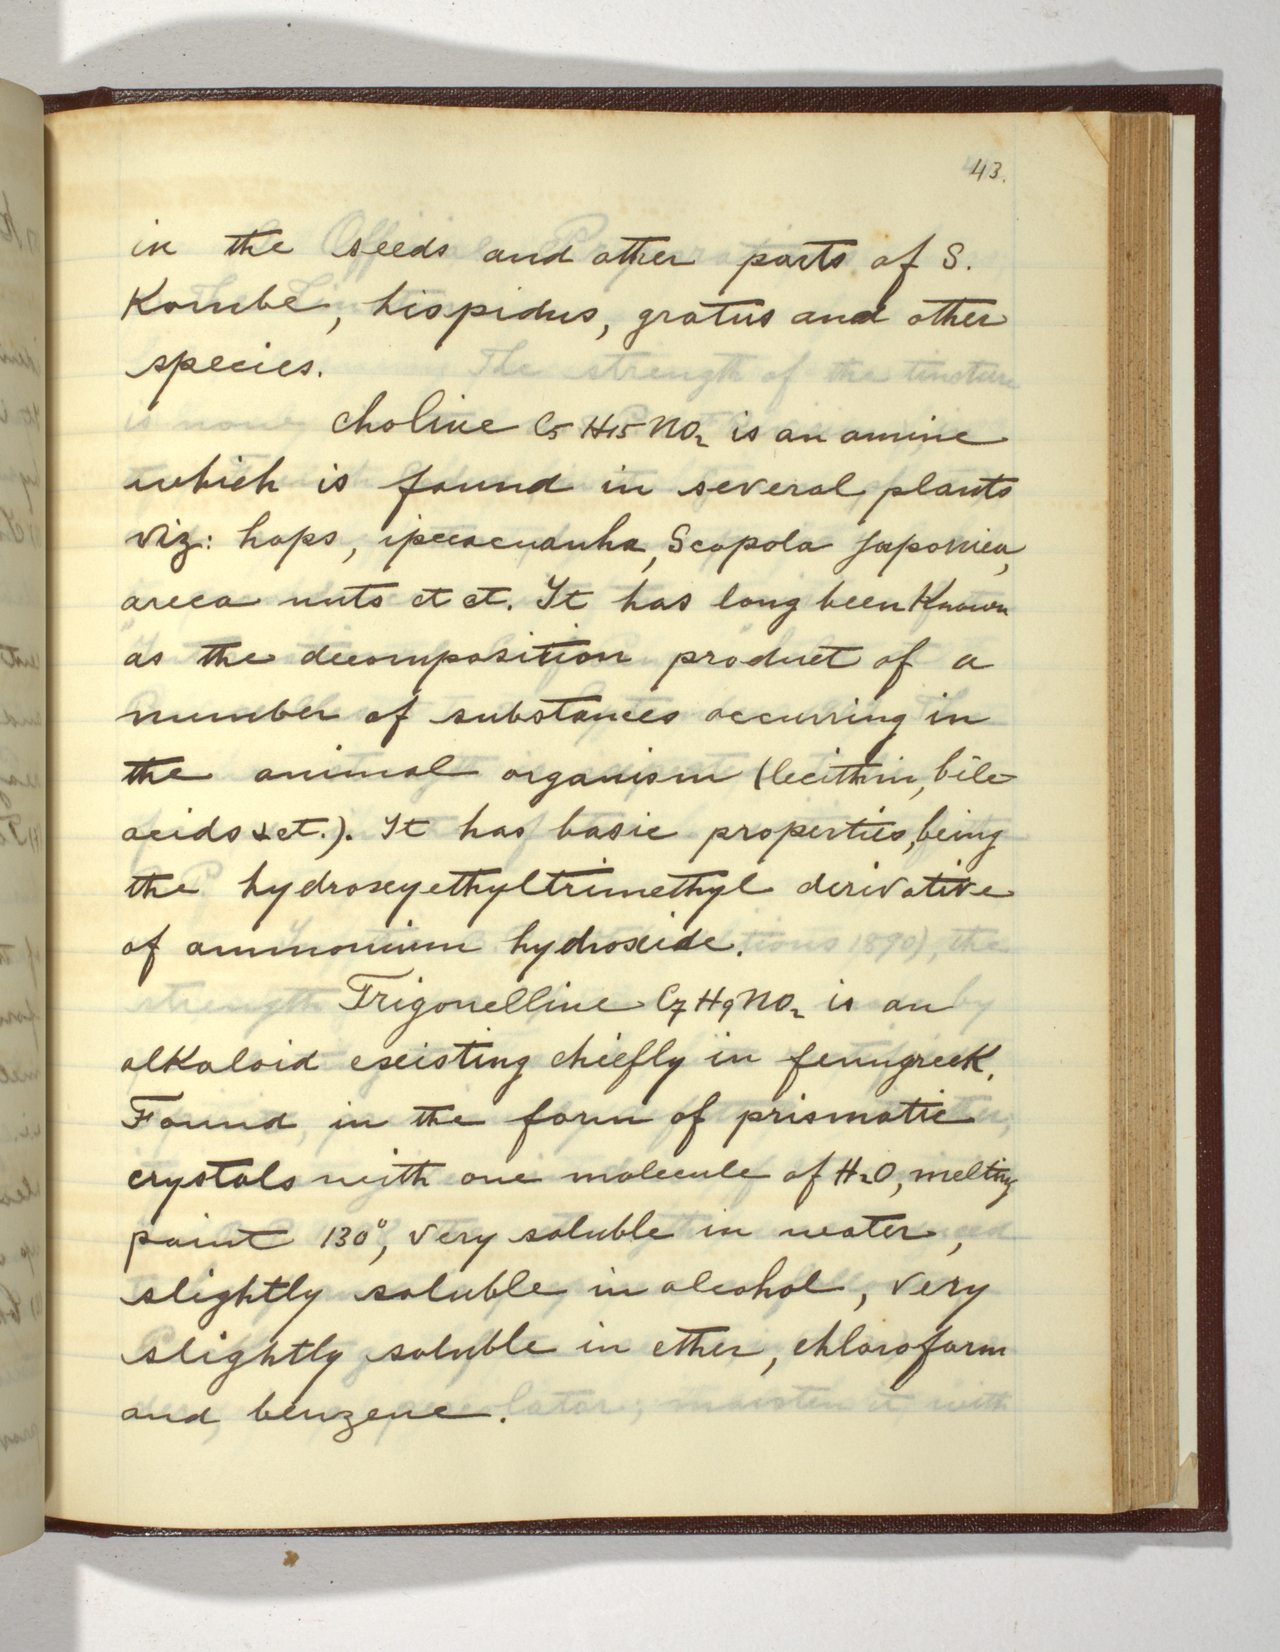 43.
in the seeds and other parts of S.
Kombe, hispidus, gratus and other
species.
Choline C5 H15 NO2 is an amine
which is found in several plants
viz: hops, ipecacuanha, Scopola japonica,
areca nuts et et. It has long been Known
as the decomposition product of a
number of substances occurring in
the animal organism (lecithin, bile-
acids & et.). It has basic properties, being
the hydroxyethyltrimethyl derivative
of ammonium hydroxide.
Trigonelline C7 H9 NO2 is an
alKaloid existing chiefly in fenugreeK.
Found in the form of prismatic
crystals with one molecule of H2O, melting
point 130°, very soluble in water,
slightly soluble in alcohol, very
slightly soluble in ether, chloroform
and benzene.